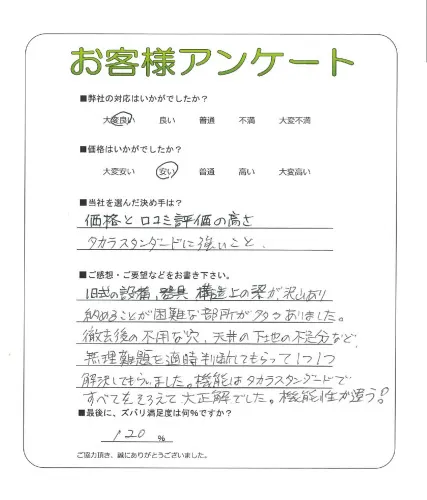 お客様アンケート
■弊社の対応はいかがでしたか？
大変良い 良い 普通 不満 大変不満
■価格はいかがでしたか？
大変安い 安い 普通 高い 大変高い
■当社を選んだ決め手は？
価格と口コミ評価の高さ
タカラスタンダードに強いこと、
■ご感想・ご要望などをお書き下さい。
旧式の設備、器具、構造上の梁が沢山あり
納めることが困難な部所が多々ありました。
徹去後の不用な穴、天井の下地の不足分など、
無理難題を適時判断してもらって1つ1つ
解決してもらいました。機能はタカラスタンダードで
すべてをそろえて大正解でした。機能性が違う！
■最後に、ズバリ満足度は何％ですか？
120 %
ご協力頂き、誠にありがとうございました。